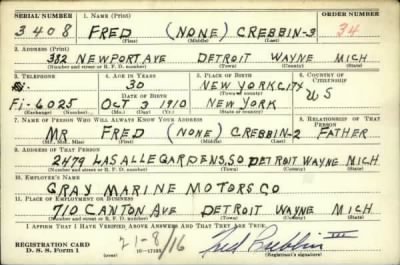 SERIAL NUMBER 1. NAME (Print) ORDER NUMBER
3408 FRED (NONE) CREBBIN-3 34
(First) (Middle) (Last)
2. ADDRESS (Print)
332 NEWPORT AVE DETROIT WAYNE MICH
(Number and street or R. F. D. number) (Town) (County) (State)
3. TELEPHONE 4. AGE IN YEARS 5. PLACE OF BIRTH 6. COUNTRY OF CITIZENSHIP
30 NEW YORK CITY
DATE OF BIRTH (Town or county) U S
Fi-6025 OCT 3 1910 NEW YORK
(Exchange) (Number) (Mo.) (Day) (Yr.) (State or country)
7. NAME OF PERSON WHO WILL ALWAYS KNOW YOUR ADDRESS 8. RELATIONSHIP OF THAT PERSON
MR FRED (NONE) CREBBIN-2 FATHER
(Mr., Mrs., Miss) (First) (Middle) (Last)
9. ADDRESS OF THAT PERSON
2479 LASALLE GARDENS, SO DETROIT WAYNE MICH
(Number and street or R. F. D. number) (Town) (County) (State)
10. EMPLOYER'S NAME
GRAY MARINE MOTORS CO
11. PLACE OF EMPLOYMENT OR BUSINESS
710 CANTON AVE DETROIT WAYNE MICH
(Number and street or R. F. D. number) (Town) (County) (State)
I AFFIRM THAT I HAVE VERIFIED ABOVE ANSWERS AND THAT THEY ARE TRUE.
REGISTRATION CARD
D. S. S. Form 1 21-8/16 Fred Crebbin III
(Registrant's signature)